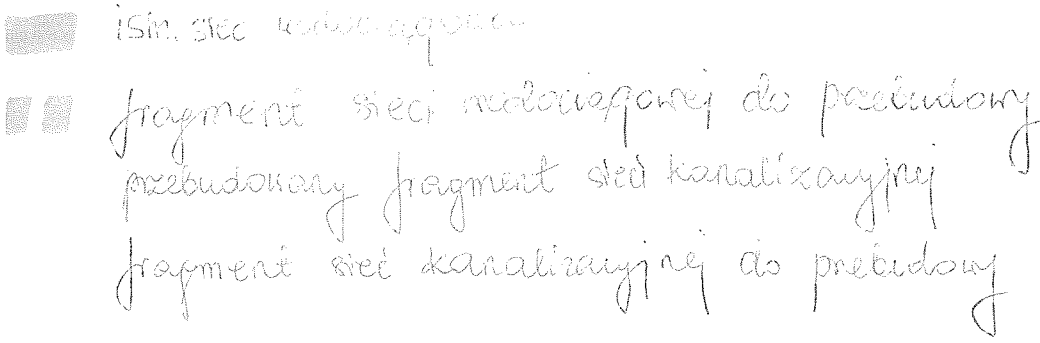 istn. sieć wodociągowa
fragment sieci wodociągowej do przebudowy
przebudowany fragment sieci kanalizacyjnej
fragment sieć kanalizacyjnej do przebudowy